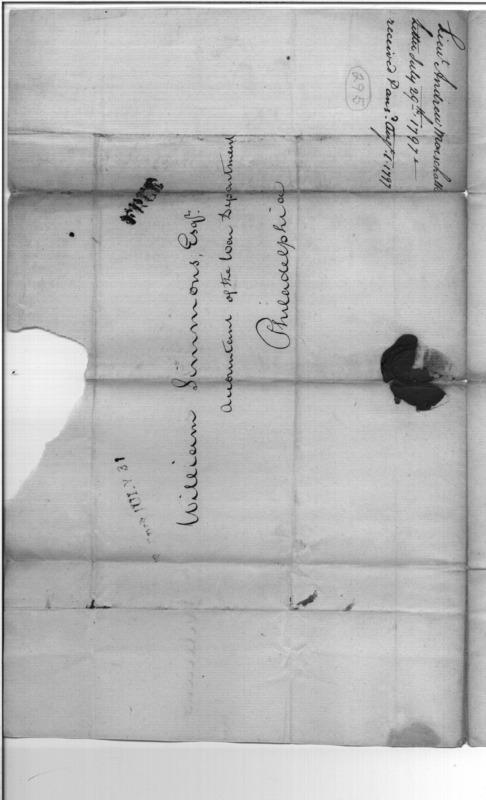 Lieut Andrew Marschalk
letter July 29th 1797
received & ansd. Augt. 1. 1797
295
William Simmons, Esqr.
Accountant of the War Department
Philadelphia
JULY 31